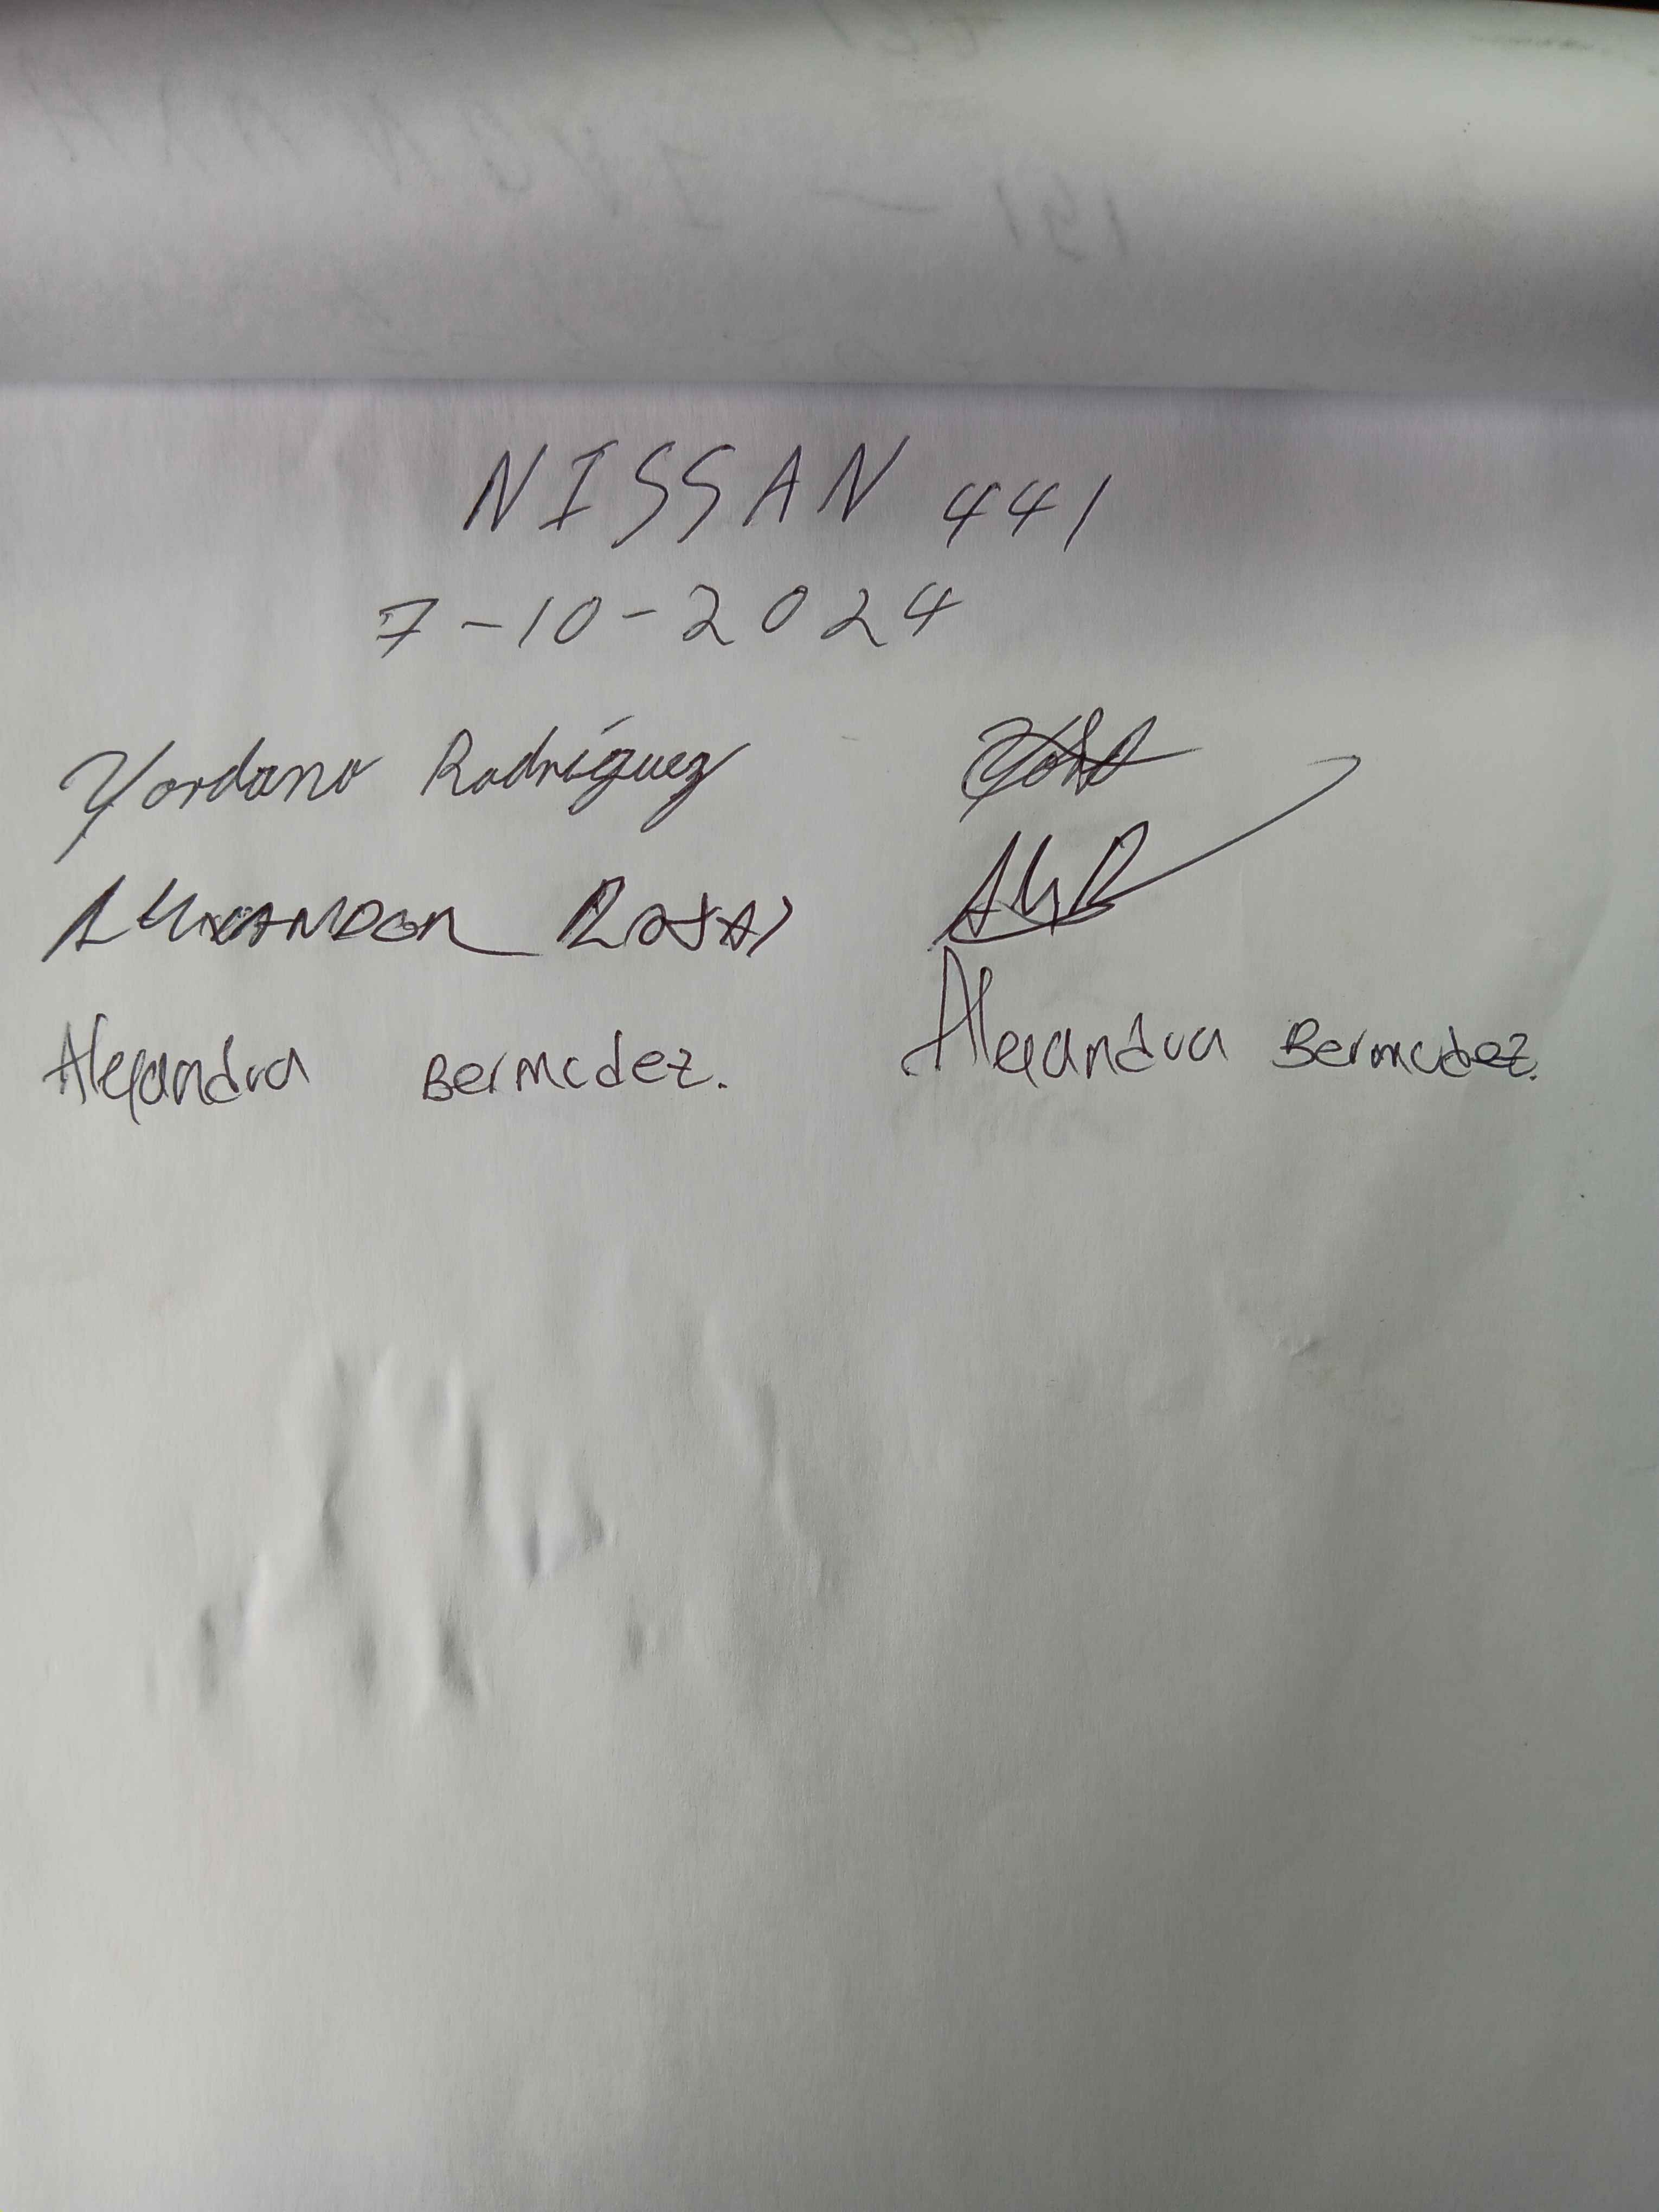 NISSAN 441
7-10-2024
Yordano Rodríguez
ALEXANDER ROJAS
Alejandra Bermudez. Alejandra Bermudez.